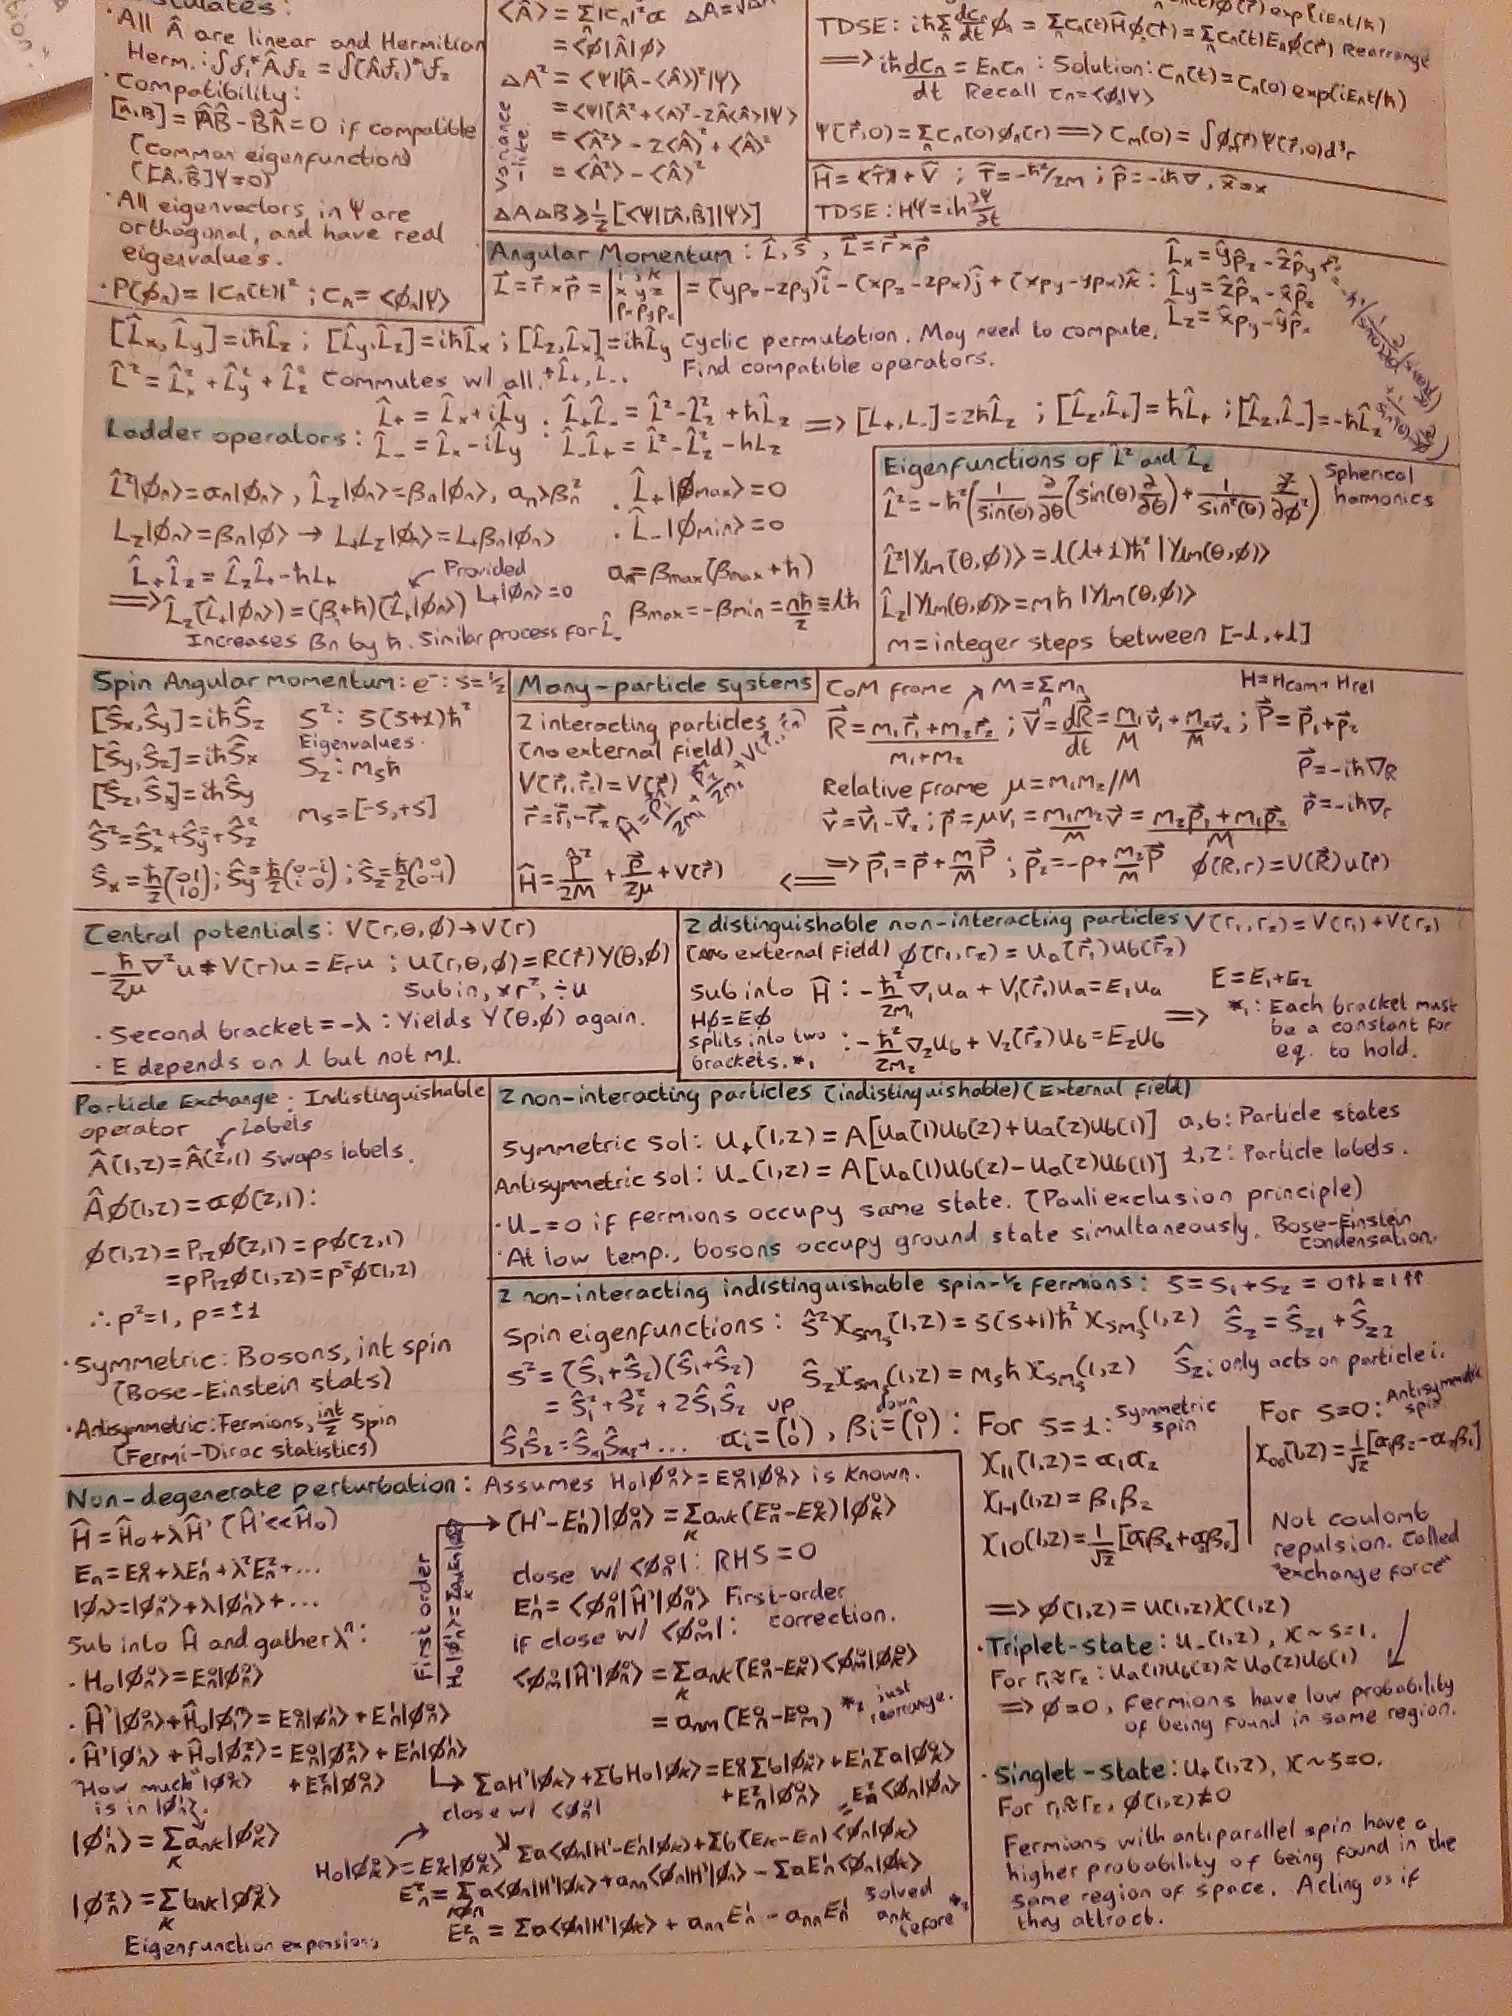 · All Â are linear and Hermitian
Herm.: ∫f₁*Âf₂ = ∫(Âf₁)*f₂
· Compatibility:
[Â,B̂] = ÂB̂ - B̂Â = 0 if compatible
(common eigenfunction)
([Â,B̂]Ψ=0)
· All eigenvectors, in Ψ are
orthogonal, and have real
eigenvalues.
· P(φₙ) = |cₙ(t)|² ; cₙ = <φₙ|Ψ>
= <φ|Â|φ>
ΔA² = <Ψ|(Â - <Â>)²|Ψ>
= <Ψ|(Â² + <A>² - 2Â<Â>|Ψ>
= <Â²> - 2<Â>² + <Â>²
= <Â²> - <Â>²
Variance like.
ΔAΔB ≥ ½[<Ψ|[Â,B̂]|Ψ>]
TDSE: iħΣ dcₙ/dt φₙ = Σcₙ(t)Ĥφₙ(r⃗) = Σcₙ(t)Eₙφ(r⃗) Rearrange
⟹ iħ dcₙ/dt = Eₙcₙ : Solution: cₙ(t) = cₙ(0) exp(iEₙt/ħ)
Recall cₙ = <φₙ|Ψ>
Ψ(r⃗,0) = Σ cₙ(0)φₙ(r) ⟹ cₘ(0) = ∫φₘ*(r⃗)Ψ(r⃗,0)d³r
TDSE: HΨ = iħ ∂Ψ/∂t
Angular Momentum : L̂, ŝ , L⃗ = r⃗×p⃗
L⃗ = r⃗×p⃗ = |i j k / x y z / pₓ p_y p_z| = (yp_z-zp_y)î - (xp_z-zpₓ)ĵ + (xp_y-ypₓ)k̂ :
L̂ₓ = ŷp̂_z - ẑp̂_y
L̂_y = ẑp̂ₓ - x̂p̂_z
L̂_z = x̂p̂_y - ŷp̂ₓ
[L̂ₓ, L̂_y] = iħL̂_z ; [L̂_y, L̂_z] = iħL̂ₓ ; [L̂_z, L̂ₓ] = iħL̂_y Cyclic permutation. May need to compute.
L̂² = L̂ₓ² + L̂_y² + L̂_z² Commutes w/ all, + L̂₊, L̂₋. Find compatible operators.
Ladder operators : L̂₊ = L̂ₓ + iL̂_y . L̂₊L̂₋ = L̂² - L̂_z² + ħL̂_z ⟹ [L₊,L₋] = 2ħL̂_z ; [L̂_z,L̂₊] = ħL̂₊ ; [L̂_z,L̂₋] = -ħL̂₋
L̂₋ = L̂ₓ - iL̂_y · L̂₋L̂₊ = L̂² - L̂_z² - ħL_z
L̂²|φₙ> = αₙ|φₙ> , L̂_z|φₙ> = βₙ|φₙ>, αₙ>βₙ² · L̂₊|φmax> = 0
L_z|φₙ> = βₙ|φ> → L₊L_z|φₙ> = L₊βₙ|φₙ> · L̂₋|φmin> = 0
L̂₊L̂_z = L̂_zL̂₊ - ħL₊ ↙ Provided L₊|φₙ> = 0 αₙ = βmax(βmax + ħ)
⟹ L̂_z(L̂₊|φₙ>) = (β+ħ)(L̂₊|φₙ>) βmax = -βmin = nħ/2 ≡ lħ
Increases βₙ by ħ. Similar process for L̂₋
Eigenfunctions of L̂² and L̂_z
Spherical harmonics
L̂² = -ħ²(1/sin(θ) ∂/∂θ(sin(θ)∂/∂θ) + 1/sin²(θ) ∂²/∂φ²)
L̂²|Ylm(θ,φ)> = l(l+1)ħ² |Ylm(θ,φ)>
L̂_z|Ylm(θ,φ)> = mħ |Ylm(θ,φ)>
m = integer steps between [-l,+l]
Spin Angular momentum: e⁻: s=½
[Ŝₓ,Ŝ_y] = iħŜ_z S²: s(s+1)ħ²
[Ŝ_y,Ŝ_z] = iħŜₓ Eigenvalues.
[Ŝ_z,Ŝₓ] = iħŜ_y S_z: m_sħ
Ŝ² = Ŝₓ² + Ŝ_y² + Ŝ_z² m_s = [-s,+s]
Ŝₓ = ħ/2(0 1 / 1 0) ; Ŝ_y = ħ/2(0 -i / i 0) ; Ŝ_z = ħ/2(1 0 / 0 -1)
Many-particle systems
2 interacting particles
(no external field)
V(r⃗₁,r⃗₂) = V(r⃗)
r⃗ = r⃗₁ - r⃗₂
Ĥ = P̂²/2M + p⃗/2μ + V(r⃗)
CoM frame ↗ M = Σmₙ H = Hcom + Hrel
R⃗ = (m₁r⃗₁ + m₂r⃗₂)/(m₁+m₂) ; V⃗ = dR⃗/dt = m₁/M v⃗₁ + m₂/M v⃗₂ ; P⃗ = p⃗₁ + p⃗₂
Relative frame μ = m₁m₂/M P⃗ = -iħ∇_R
v⃗ = v⃗₁ - v⃗₂ ; p⃗ = μv₁ = m₁m₂/M v⃗ = (m₂p⃗₁ + m₁p⃗₂)/M p⃗ = -iħ∇_r
⟸ ⟹ p⃗₁ = p⃗ + m/M P⃗ ; p⃗₂ = -p + m₂/M P⃗ φ(R,r) = U(R⃗)u(r⃗)
Central potentials : V(r,θ,φ) → V(r)
-ħ/2μ ∇²u + V(r)u = E_r u ; u(r,θ,φ) = R(r⃗)Y(θ,φ)
Sub in, ×r², ÷u
· Second bracket = -λ : Yields Y(θ,φ) again.
· E depends on l but not ml.
2 distinguishable non-interacting particles V(r₁,r₂) = V(r₁) + V(r₂)
(no external field) φ(r₁,r₂) = Ua(r⃗₁)Ub(r⃗₂)
Sub into Ĥ : -ħ²/2m₁ ∇₁ua + V₁(r⃗₁)ua = E₁ua E = E₁+E₂
Hφ=Eφ
splits into two : -ħ²/2m₂ ∇₂ub + V₂(r⃗₂)ub = E₂ub ⟹
brackets. *₁
*₁: Each bracket must
be a constant for
eq. to hold.
Particle Exchange : Indistinguishable
operator ↙ Labels
Â(1,2) = Â(2,1) swaps labels.
Âφ(1,2) = αφ(2,1):
φ(1,2) = P₁₂φ(2,1) = pφ(2,1)
= pP₁₂φ(1,2) = p²φ(1,2)
∴ p²=1, p=±1
· Symmetric: Bosons, int spin
(Bose-Einstein stats)
· Antisymmetric: Fermions, int/2 spin
(Fermi-Dirac statistics)
2 non-interacting particles (indistinguishable) (External field)
Symmetric sol: U₊(1,2) = A[Ua(1)Ub(2) + Ua(2)Ub(1)] a,b: Particle states
Antisymmetric sol: U₋(1,2) = A[Ua(1)Ub(2) - Ua(2)Ub(1)] 1,2: Particle labels.
· U₋=0 if fermions occupy same state. (Pauli exclusion principle)
· At low temp., bosons occupy ground state simultaneously. Bose-Einstein condensation.
2 non-interacting indistinguishable spin-½ fermions : S = S₁+S₂ = 0↑↓ = 1↑↑
Spin eigenfunctions : Ŝ²χsmₛ(1,2) = s(s+1)ħ² χsmₛ(1,2) Ŝ_z = Ŝ_z1 + Ŝ_z2
S² = (Ŝ₁+Ŝ₂)(Ŝ₁+Ŝ₂) Ŝ_zχsmₛ(1,2) = mₛħ χsmₛ(1,2) Ŝ_zi only acts on particle i.
= Ŝ₁² + Ŝ₂² + 2Ŝ₁Ŝ₂ up down
Ŝ₁Ŝ₂ = Ŝₓ₁Ŝₓ₂ + ... αᵢ = (1 / 0) , βᵢ = (0 / 1) : For S=1: Symmetric spin
χ₁₁(1,2) = α₁α₂
χ₁₋₁(1,2) = β₁β₂
χ₁₀(1,2) = 1/√2[α₁β₂ + α₂β₁]
For S=0: Antisymmetric spin
χ₀₀(1,2) = 1/√2[α₁β₂ - α₂β₁]
Not coulomb
repulsion. Called
"exchange force"
⟹ φ(1,2) = U(1,2)χ(1,2)
· Triplet-state : U₋(1,2), χ ~ S=1.
For r₁≈r₂ : Ua(1)Ub(2) ≈ Ua(2)Ub(1)
⟹ φ=0, Fermions have low probability
of being found in same region.
· Singlet-state : U₊(1,2), χ ~ S=0.
For r₁≈r₂, φ(1,2)≠0
Fermions with antiparallel spin have a
higher probability of being found in the
same region of space. Acting as if
they attract.
Non-degenerate perturbation : Assumes H₀|φₙ⁰> = Eₙ⁰|φₙ⁰> is known.
Ĥ = Ĥ₀ + λĤ' (Ĥ'<<Ĥ₀)
Eₙ = Eₙ⁰ + λEₙ¹ + λ²Eₙ² + ...
|φₙ> = |φₙ⁰> + λ|φₙ¹> + ...
Sub into Ĥ and gather λⁿ:
· H₀|φₙ⁰> = Eₙ⁰|φₙ⁰>
· Ĥ'|φₙ⁰> + Ĥ₀|φₙ¹> = Eₙ⁰|φₙ¹> + Eₙ¹|φₙ⁰>
· Ĥ'|φₙ¹> + Ĥ₀|φₙ²> = Eₙ⁰|φₙ²> + Eₙ¹|φₙ¹>
+ Eₙ²|φₙ⁰>
"How much" |φₖ⁰>
is in |φₙ¹>.
|φₙ¹> = Σₖ aₙₖ|φₖ⁰>
|φₙ²> = Σₖ bₙₖ|φₖ⁰>
Eigenfunction expansions
First order
(H'-Eₙ¹)|φₙ⁰> = Σₖ aₙₖ(Eₙ⁰-Eₖ⁰)|φₖ⁰>
close w/ <φₙ⁰| : RHS = 0
Eₙ¹ = <φₙ⁰|Ĥ'|φₙ⁰> First-order correction.
if close w/ <φₘ⁰| :
<φₘ⁰|Ĥ'|φₙ⁰> = Σₖ aₙₖ(Eₙ⁰-Eₖ⁰)<φₘ⁰|φₖ⁰>
= aₙₘ(Eₙ⁰-Eₘ⁰) *₂ just rearrange.
↳ ΣaH'|φₖ⁰> + ΣbH₀|φₖ> = Eₙ⁰Σb|φₖ⁰> + Eₙ¹Σa|φₖ⁰>
+ Eₙ²|φₙ⁰>
close w/ <φₙ⁰|
H₀|φₖ⁰> = Eₖ⁰|φₖ⁰>
Σa<φₙ|H'-Eₙ¹|φₖ> + Σb(Eₖ-Eₙ)<φₙ|φₖ>
Eₙ² = Σ a<φₙ|H'|φₖ> + aₙₙ<φₙ|H'|φₙ> - ΣaEₙ¹<φₙ|φₖ>
Eₙ² = Σa<φₙ|H'|φₖ> + aₙₙEₙ¹ - aₙₙEₙ¹
solved aₙₖ before *₂